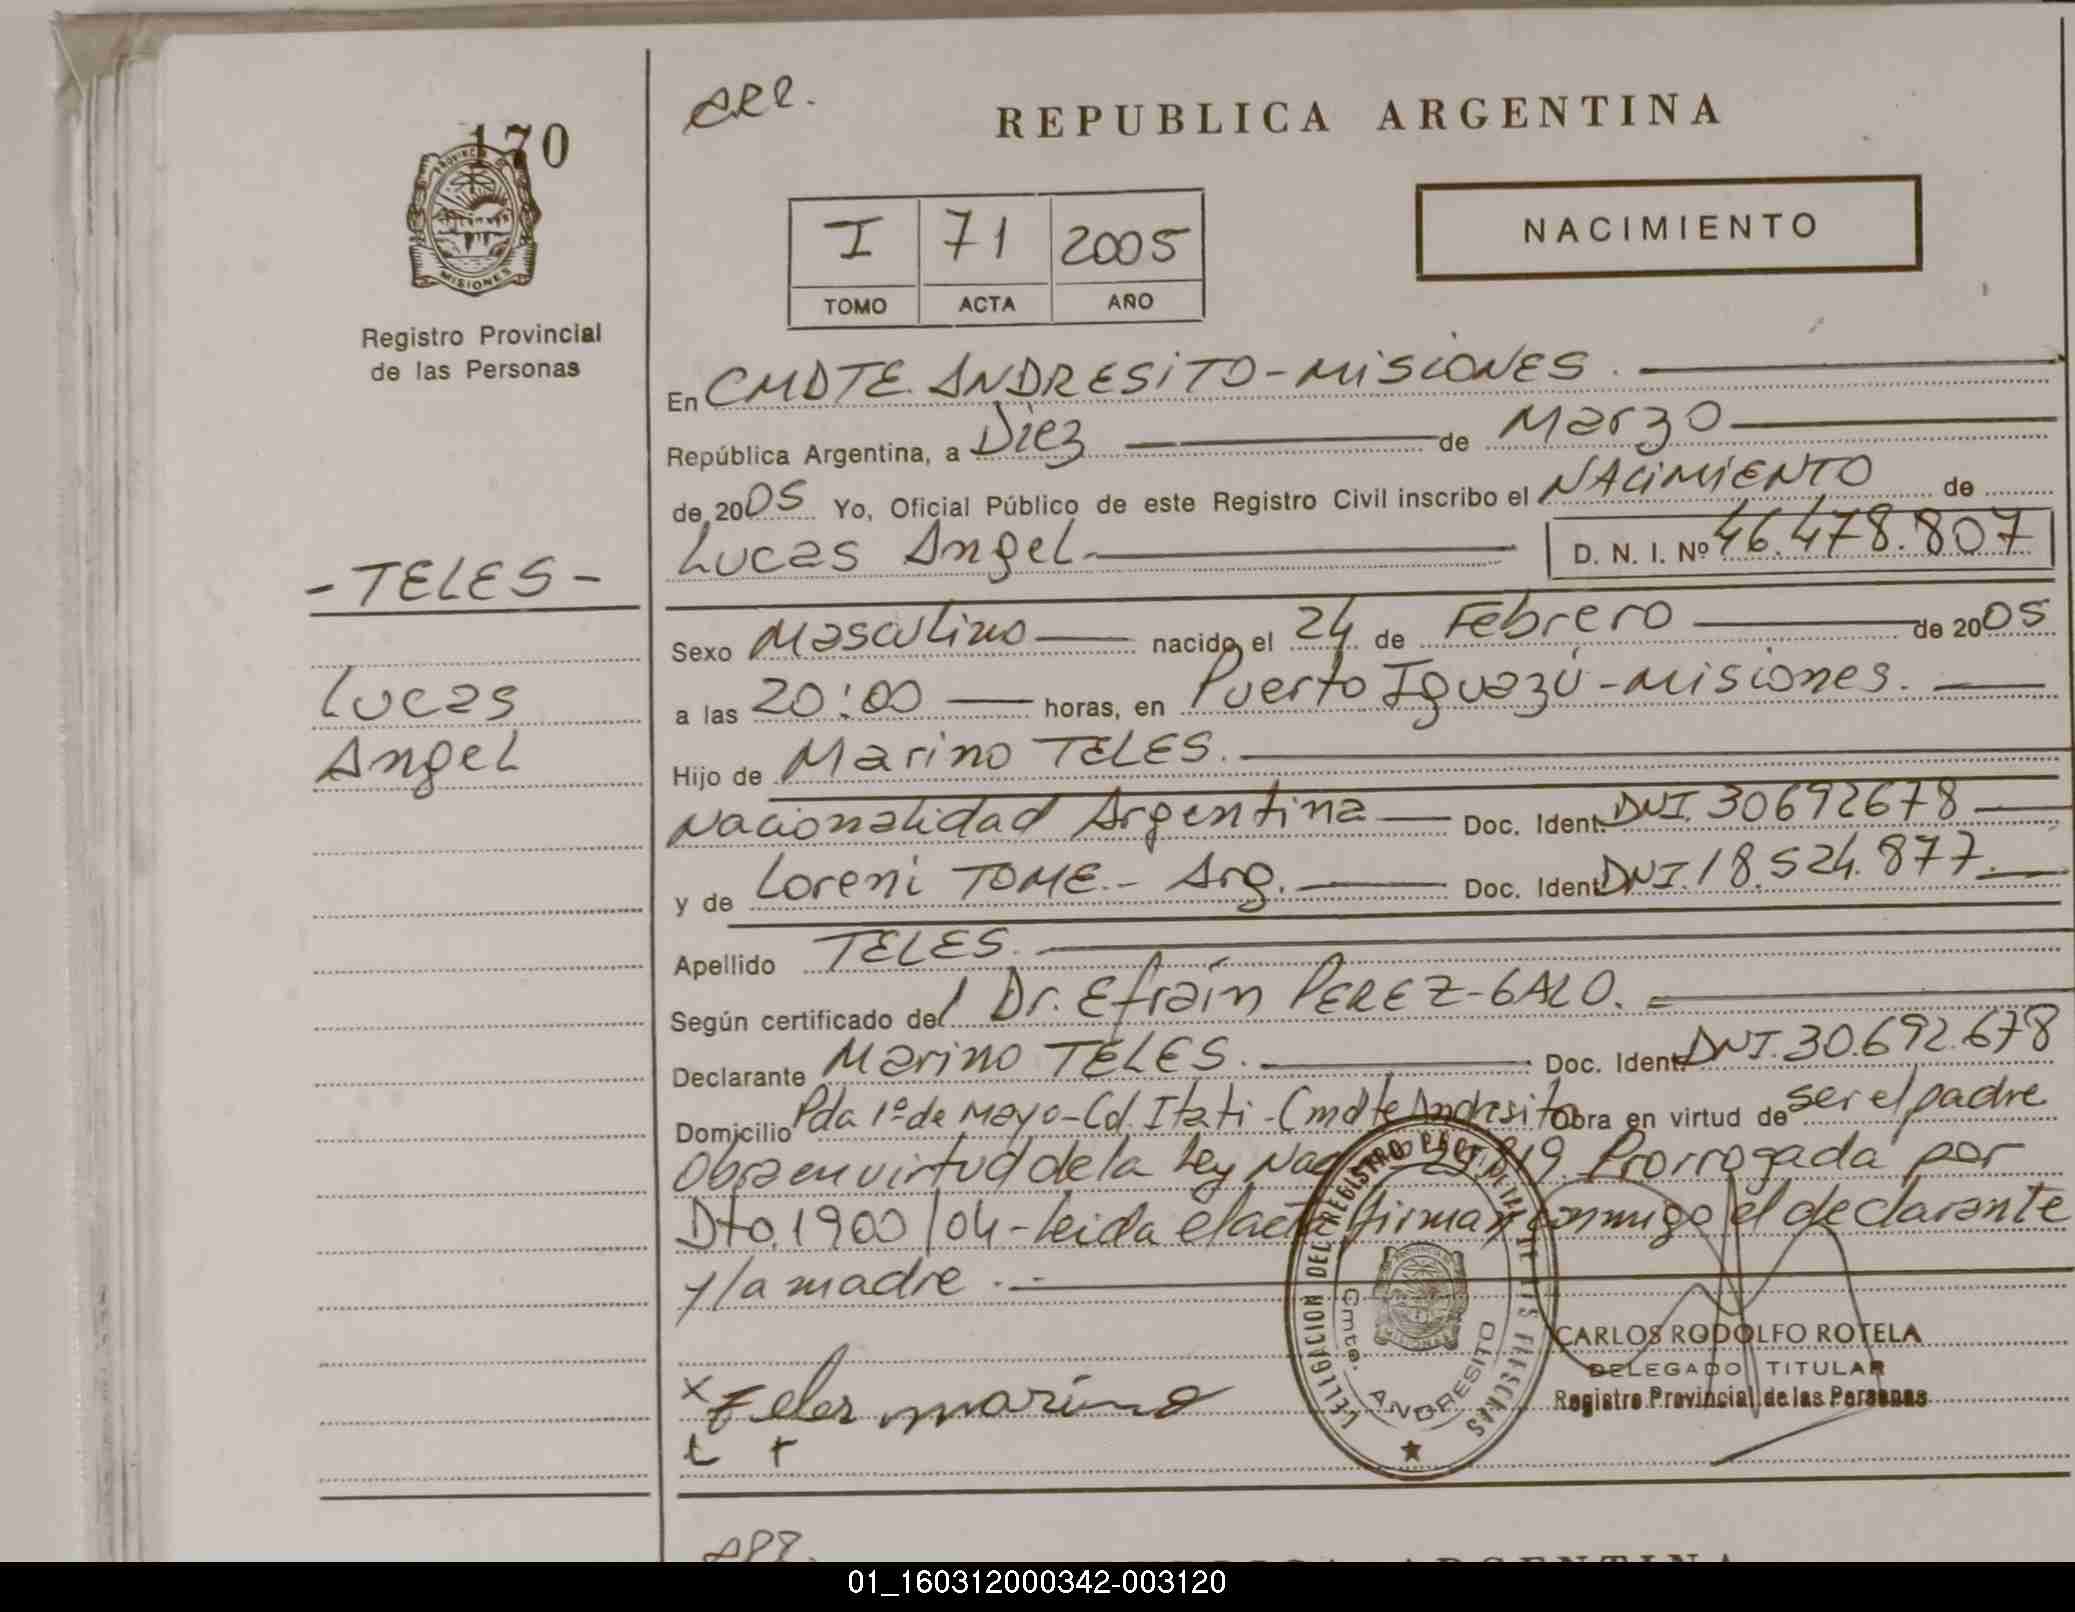 170
PROVINCIA DE
MISIONES
Registro Provincial
de las Personas
- TELES -
Lucas
Angel
REPUBLICA ARGENTINA
I 71 2005
TOMO ACTA AÑO
NACIMIENTO
En CMDTE. ANDRESITO - MISIONES.
República Argentina, a Diez de Marzo
de 2005 Yo, Oficial Público de este Registro Civil inscribo el NACIMIENTO de
Lucas Angel D. N. I. Nº 46.478.807
Sexo Masculino nacido el 24 de Febrero de 2005
a las 20:00 horas, en Puerto Iguazú - Misiones.
Hijo de Marino TELES.
Nacionalidad Argentina Doc. Ident. DNI. 30692678
y de Loreni TOME.- Arg. Doc. Ident. DNI. 18.524.877.
Apellido TELES.
Según certificado del Dr. Efraín PEREZ-GALO.
Declarante Marino TELES. Doc. Ident. DNI. 30.692.678
Domicilio Pda 1º de Mayo - Cd. Itati - Cmdte Andresito Obra en virtud de ser el padre
Obra en virtud de la Ley Nac. Prorrogada por
Dto. 1900/04 - Leida el acta firman conmigo el declarante
y la madre.
CARLOS RODOLFO ROTELA
DELEGADO TITULAR
Registro Provincial de las Personas
x Teles marino
L T
Cmte. ANDRESITO
ARGENTINA
01_160312000342-003120